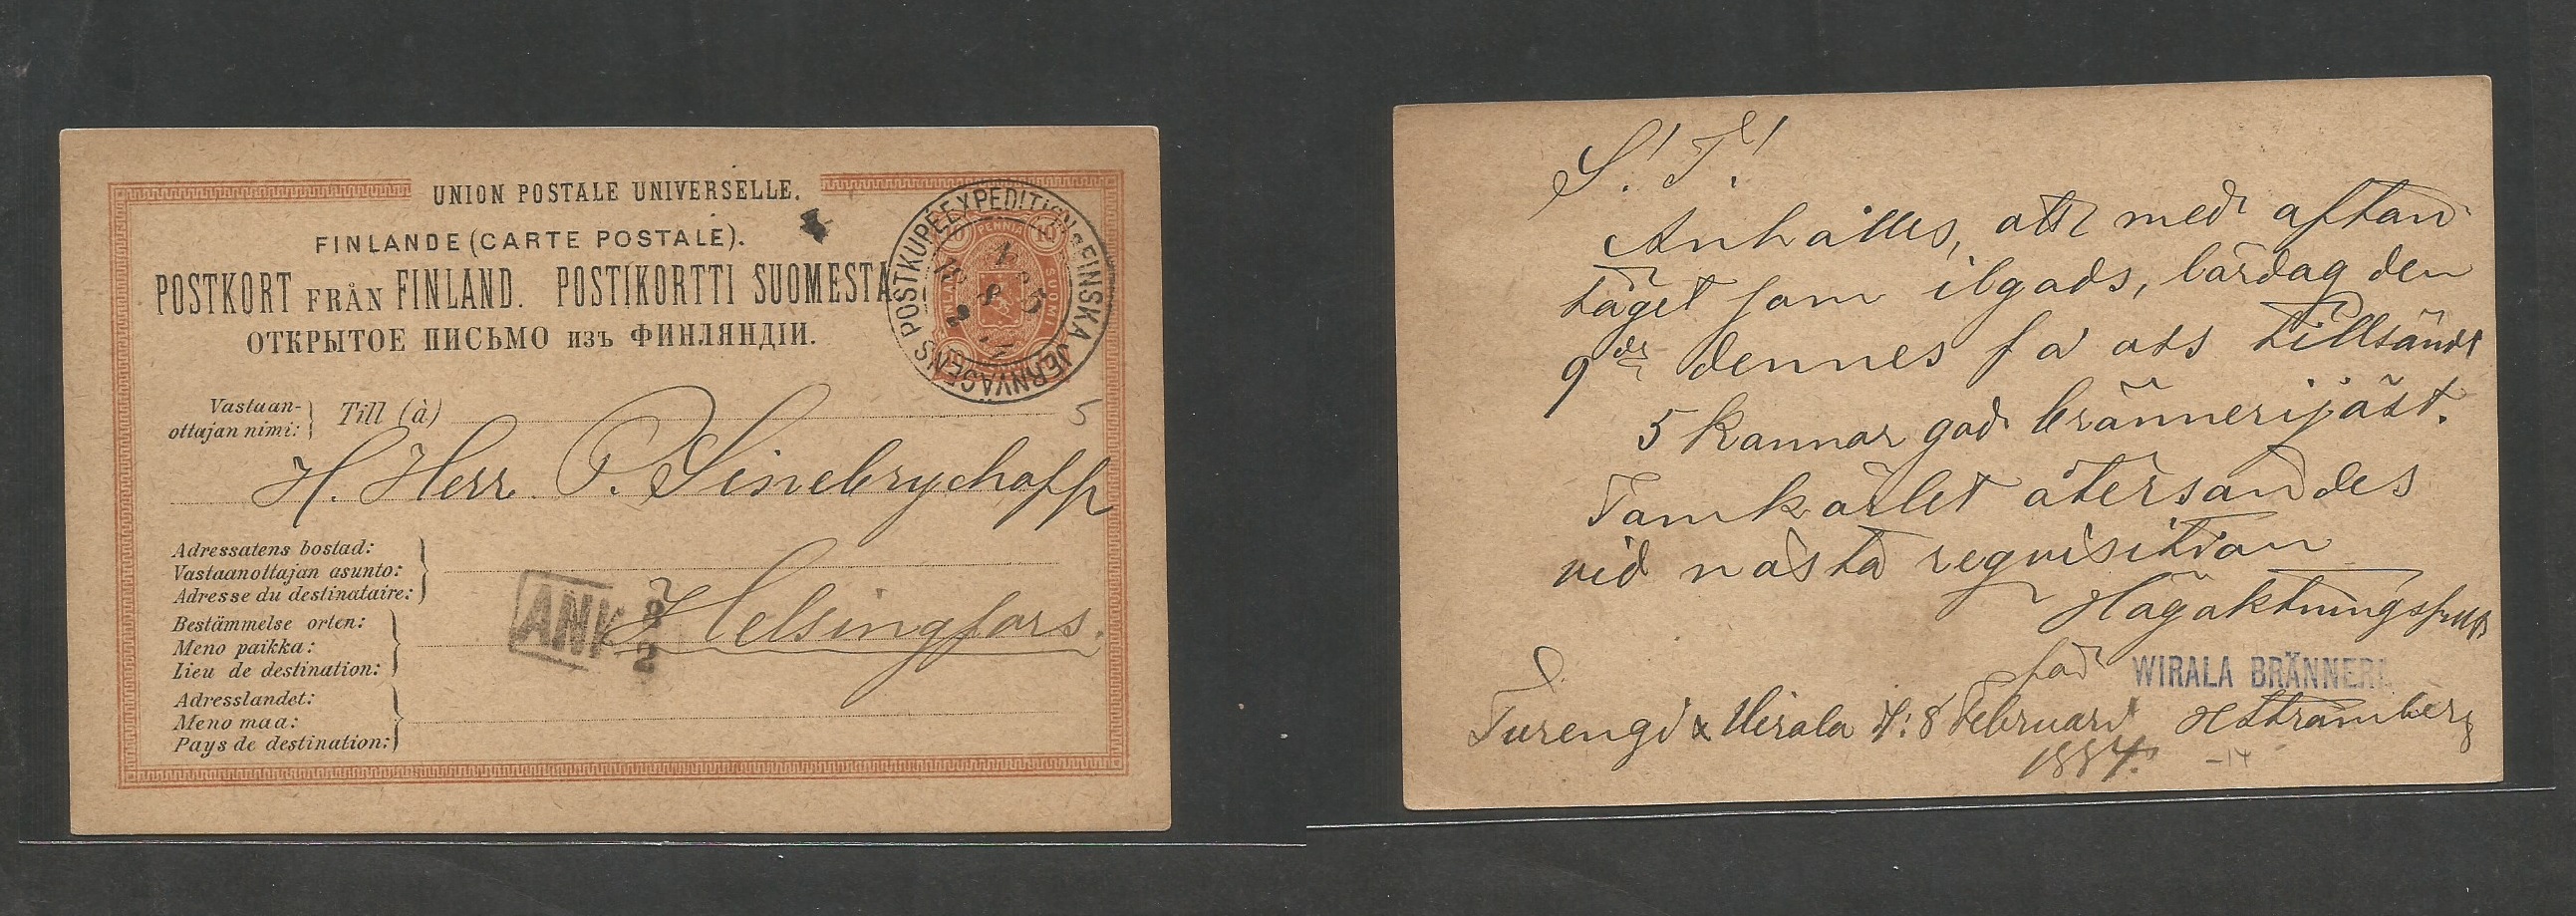 UNION POSTALE UNIVERSELLE.
FINLANDE (CARTE POSTALE).
POSTKORT FRÅN FINLAND. POSTIKORTTI SUOMESTA
ОТКРЫТОЕ ПИСЬМО изъ ФИНЛЯНДІИ.
POSTKUPÉEXPEDITION FINSKA JERNVÄGENS
10 PENNIÄ 10
SUOMI
Vastaan-
ottajan nimi:
Till (à)
5
H. Herr P. Sinebrychoff
Adressatens bostad:
Vastaanottajan asunto:
Adresse du destinataire:
ANK 8
2
Helsingfors.
Bestämmelse orten:
Meno paikka:
Lieu de destination:
Adresslandet:
Meno maa:
Pays de destination:
S! T!
Anhålles, att med afton
tåget som afgår, lördag den
9de dennes få oss tillsändt
5 kannor god brännerijäst.
Tomkärlet återsändes
vid nästa requisition
Högaktningsfullt
för WIRALA BRÄNNERI
Turengi & Wirala d: 8 Februari HStrömberg
1884.
-14